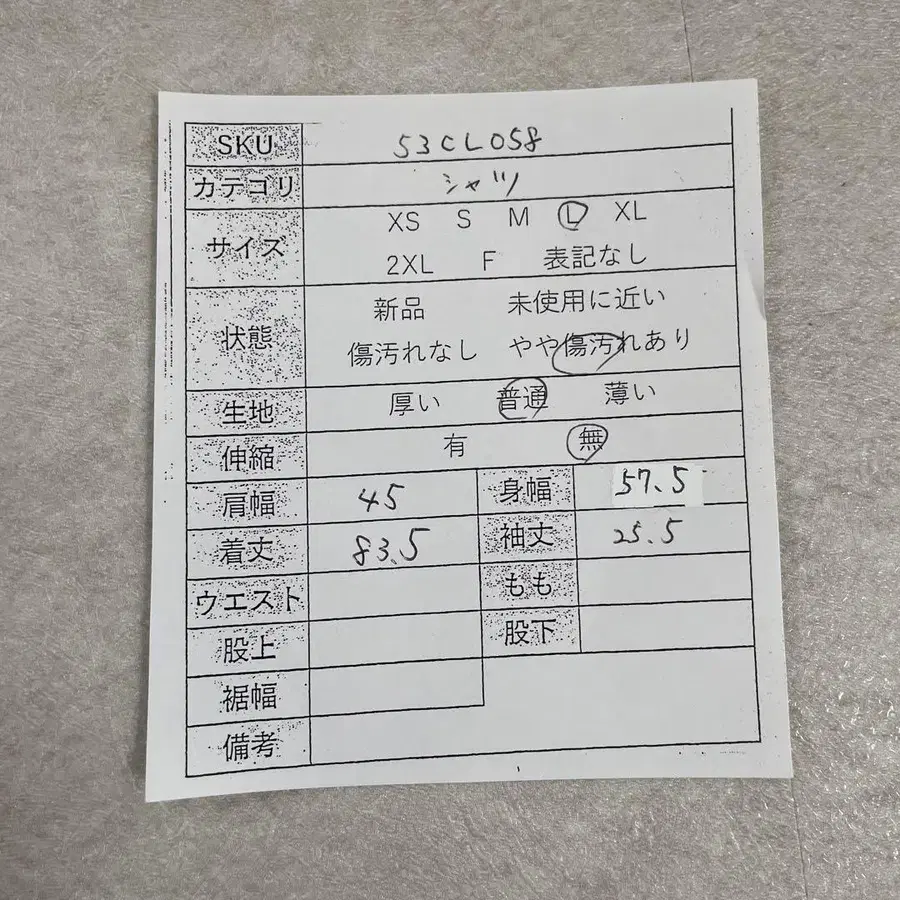 SKU 53CL058
カテゴリ シャツ
サイズ XS S M L XL
2XL F 表記なし
状態 新品 未使用に近い
傷汚れなし やや傷汚れあり
生地 厚い 普通 薄い
伸縮 有 無
肩幅 45 身幅 57.5
着丈 83.5 袖丈 25.5
ウエスト もも
股上 股下
裾幅
備考